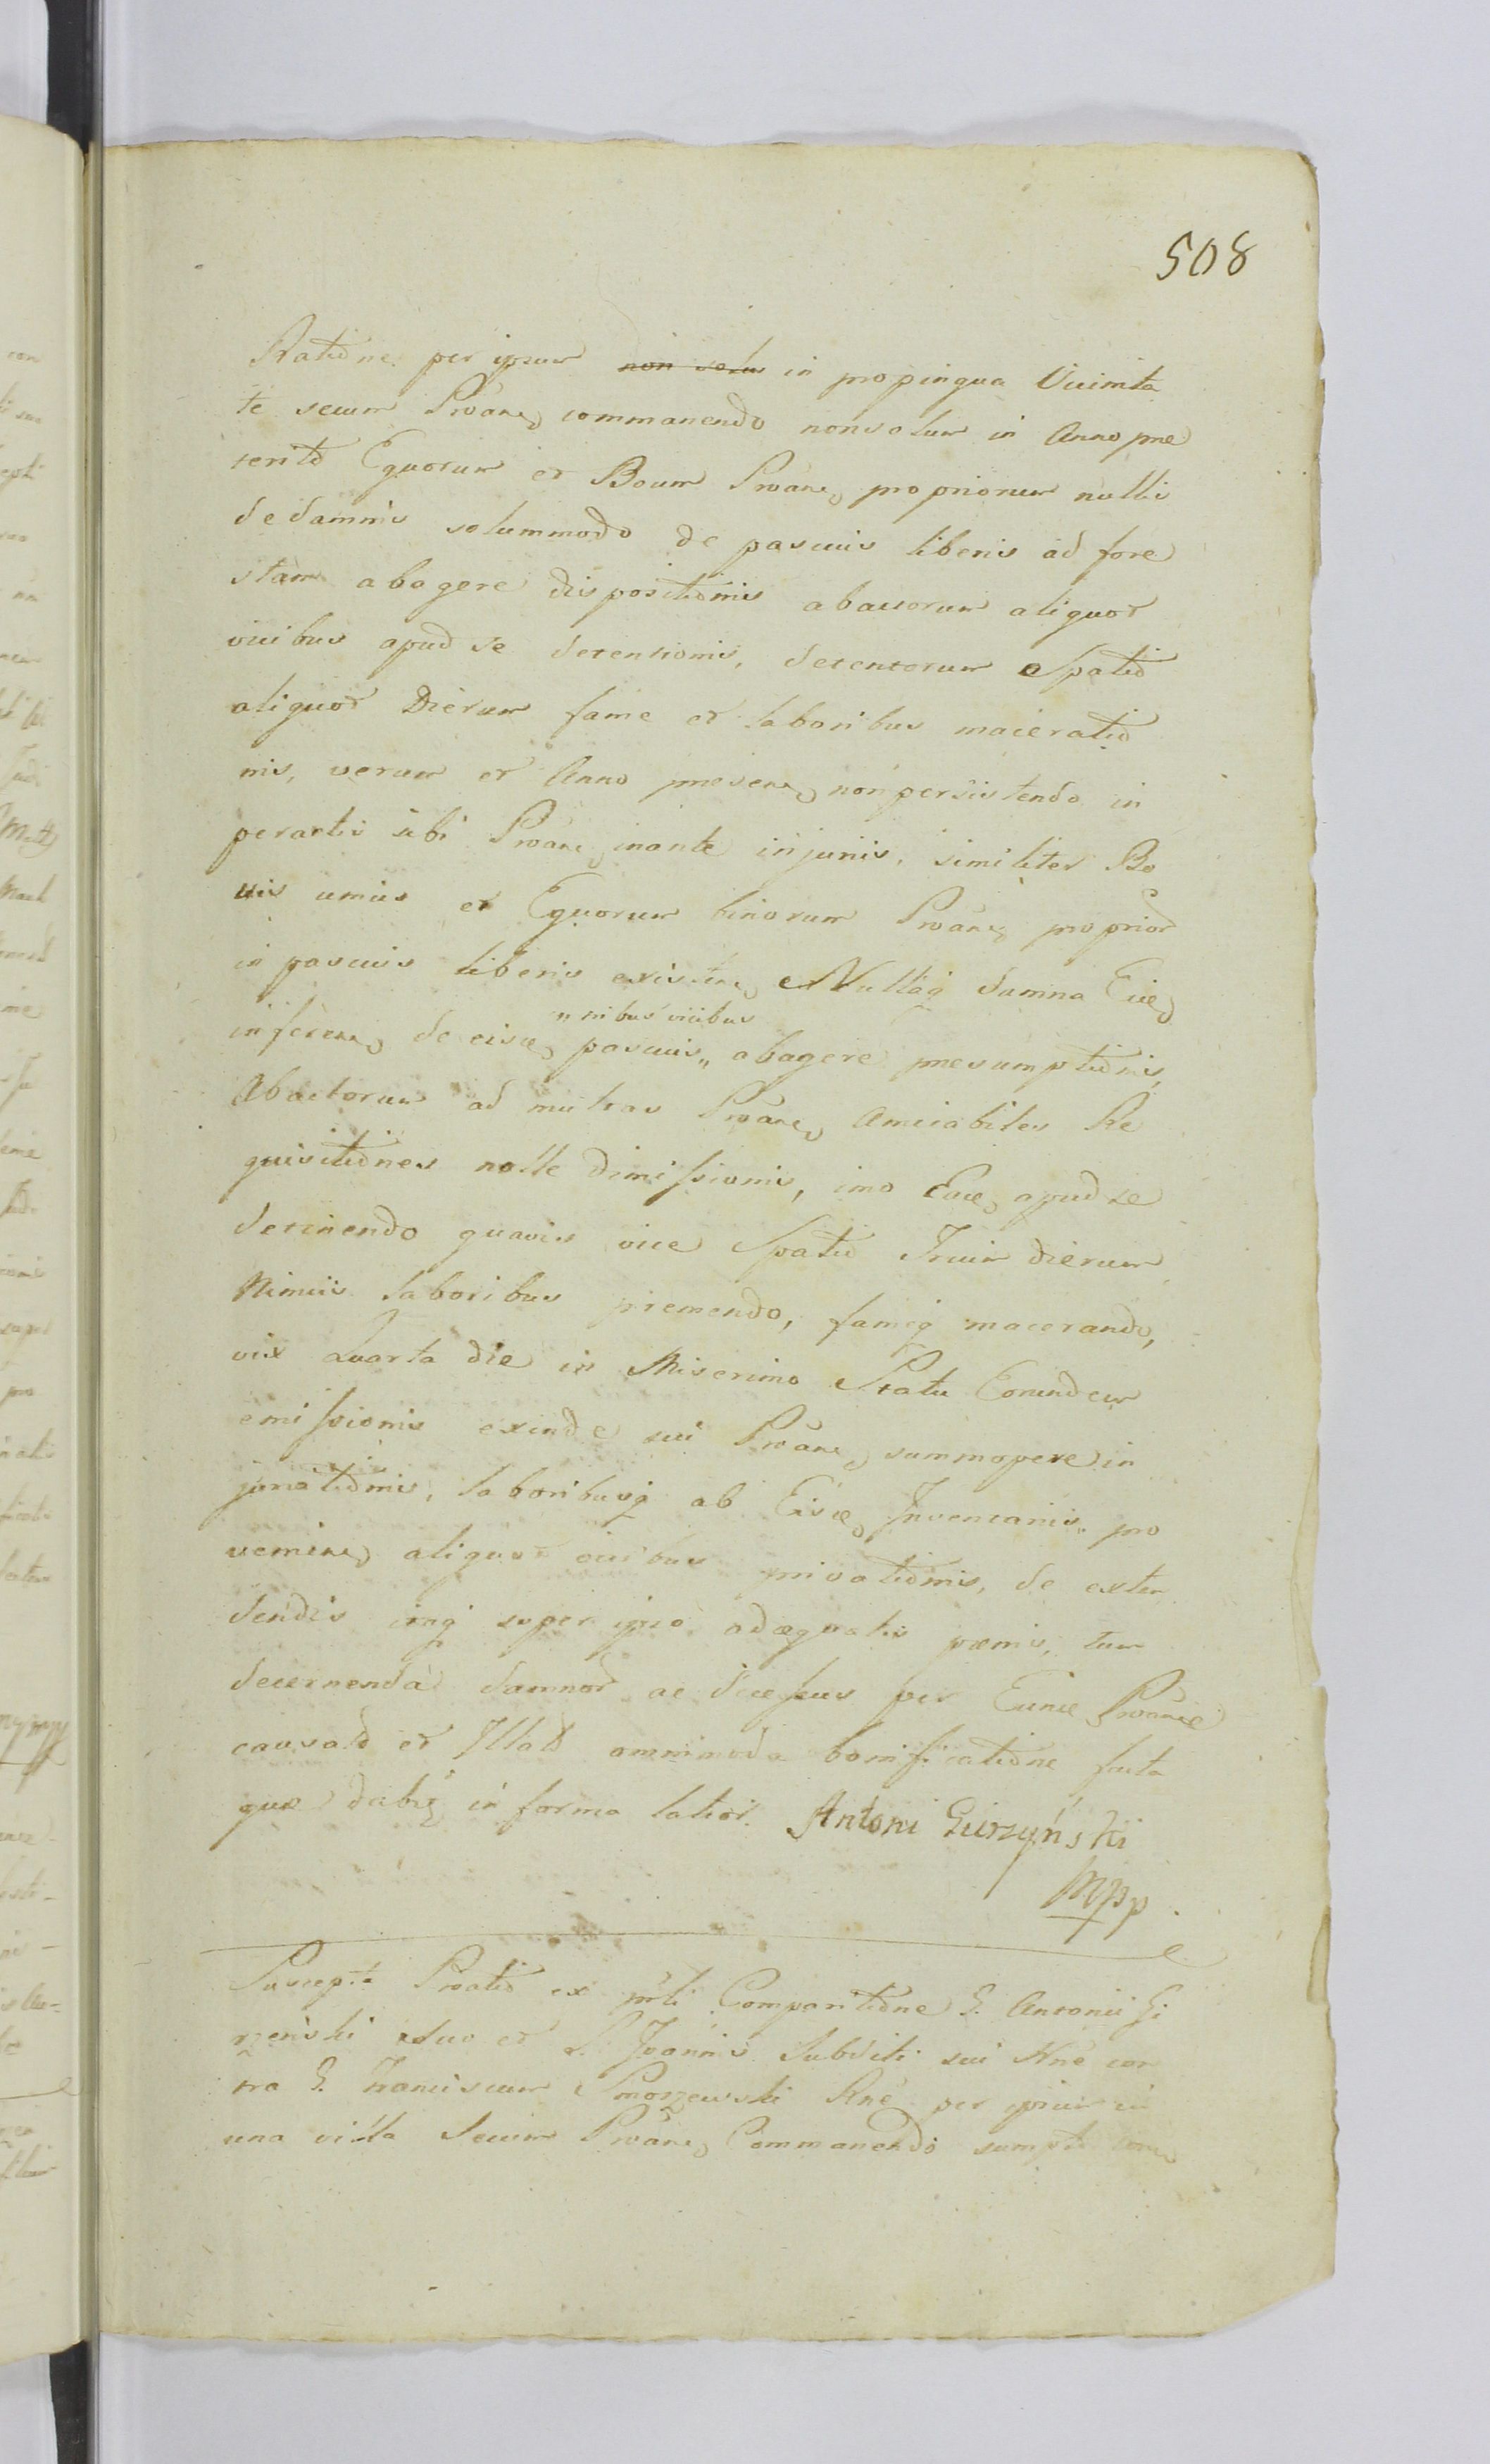 508
Ratiōne per ipsum non solu in propinqua Vicinita
te secum Proāne commanendo nonsolum in Anno præ
terito Equorum et Boum Proāne propriorum nullis
de damnis solummodo de pascuis liberis ad fore
stam abagere dispositiōnis abactorum aliquot
vicibus apud se detensionis, detentorum Spatio
aliquot Dierum fame et laboribus maceratio
nis, verum et Anno præsene non persistendo in
peractis sibi Proāne inante injuriis, similiter Bo
vis unius et Equorum binorum Proāne proprior
in pascuis liberis existene Nullaq damna Eide
inferene de eisde pascuis „ abagere præsumptiōnis,
„ nibus vicibus
Abactorum ad multas Proāne Amicabiles Re
quisitiōnes nolle dimissionis, imo Eade apud se
detinendo quavis vice Spatio Trium dierum
Nimiis laboribus premendo, fameq macerando,
vix Quarta die in Miserimo Statu Eorundem
emissionis exinde sui Proāne summopere in
juriatiōnis, laboribusq ab Eisde Inventariis pro
veniene aliquot vicibus privatiōnis, de exten
dendis irrq super ipso adæquatis pœnis, tum
decernenda damnor ac decessus per Eunde Proāne
causato et Illato omnimoda bonificatiōne facta
quæ dabiq in forma latiori. Antoni Girzyński
Mpp.
Suscepta Proātio ex prli Comparitiōne G. Antonii Gi
rzeński suo et L. Joannis Subditi sui Nne con
tra G. Franciscum Smorzewski Rne per ipsum in
una villa Secum Proāne Commanendo sumpti